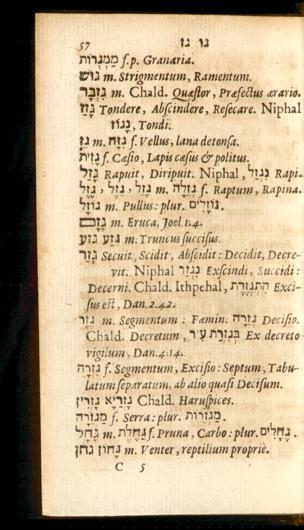 57 גו גז
מַמְגֻרוֹת f.p. Granaria.
גּוּשׁ m. Strigmentum, Ramentum.
גִּזְבָּר m. Chald. Quæstor, Præfectus ærario.
גָּזַז Tondere, Abscindere, Resecare. Niphal
נָגוֹז, Tondi.
גֵּז m. גִּזָּה f. Vellus, lana detonsa.
גָּזִית f. Cæsio, Lapis cæsus & politus.
גָּזַל Rapuit, Diripuit. Niphal, נִגְזַל Rapi.
גֵּזֶל, גָּזֵל, גָּזֶל m. גְּזֵלָה f. Raptum, Rapina.
גּוֹזָל m. Pullus: plur. גּוֹזָלִים.
גָּזָם m. Eruca, Joel.1.4.
גֶּזַע גזע m. Truncus succisus.
גָּזַר Secuit, Scidit, Abscidit: Decidit, Decre-
vit. Niphal נִגְזַר Exscindi, Succidi:
Decerni. Chald. Ithpehal, הִתְגְּזֶרֶת Exci-
sus est, Dan.2.42.
גֶּזֶר m. Segmentum: Fœmin. גְּזֵרָה Decisio.
Chald. Decretum, בִּגְזֵרַת עִיר, Ex decreto
vigilum, Dan.4.14.
גִּזְרָה f. Segmentum, Excisio: Septum, Tabu-
latum separatum, ab alio quasi Decisum.
גָּזְרַיָּא גָּזְרִין Chald. Haruspices.
מַגְזֵרָה f. Serra: plur. מַגְזֵרוֹת.
גַּחָל m. גַּחֶלֶת f. Pruna, Carbo: plur. גֶּחָלִים.
גָּחוֹן גחן m. Venter, reptilium propriè.
C 5